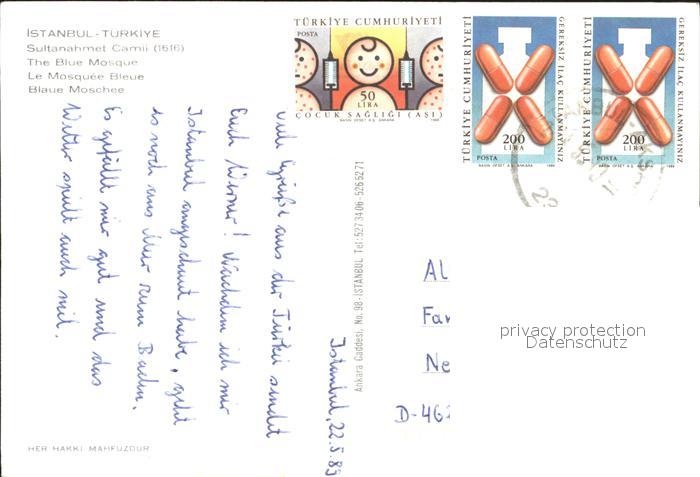 İSTANBUL - TÜRKİYE
Sultanahmet Camii (1616)
The Blue Mosque
Le Mosquée Bleue
Blaue Moschee
TÜRKİYE CUMHURİYETİ
POSTA
50
LİRA
ÇOCUK SAĞLIĞI (AŞI)
BASIN OFSET A.Ş. ANKARA 1988
TÜRKİYE CUMHURİYETİ
GEREKSİZ İLAÇ KULLANMAYINIZ
200
LİRA
POSTA
BASIN OFSET A.Ş. ANKARA 1988
TÜRKİYE CUMHURİYETİ
GEREKSİZ İLAÇ KULLANMAYINIZ
200
LİRA
POSTA
BASIN OFSET A.Ş. ANKARA 1988
Istanbul, 22.5.89
viele Grüße aus der Türkei sendet
Euch Werner! Nachdem ich mir
Istanbul angeschaut habe, geht
es noch ans Meer zum Baden.
Es gefällt mir gut und das
Wetter spielt auch mit.
Ankara Caddesi, No. 98 - İSTANBUL Tel: 527 34 06 - 526 52 71
Al
Far
Ne
D-462
privacy protection
Datenschutz
HER HAKKI MAHFUZDUR